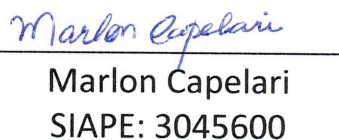 Marlon Capelari
Marlon Capelari
SIAPE: 3045600